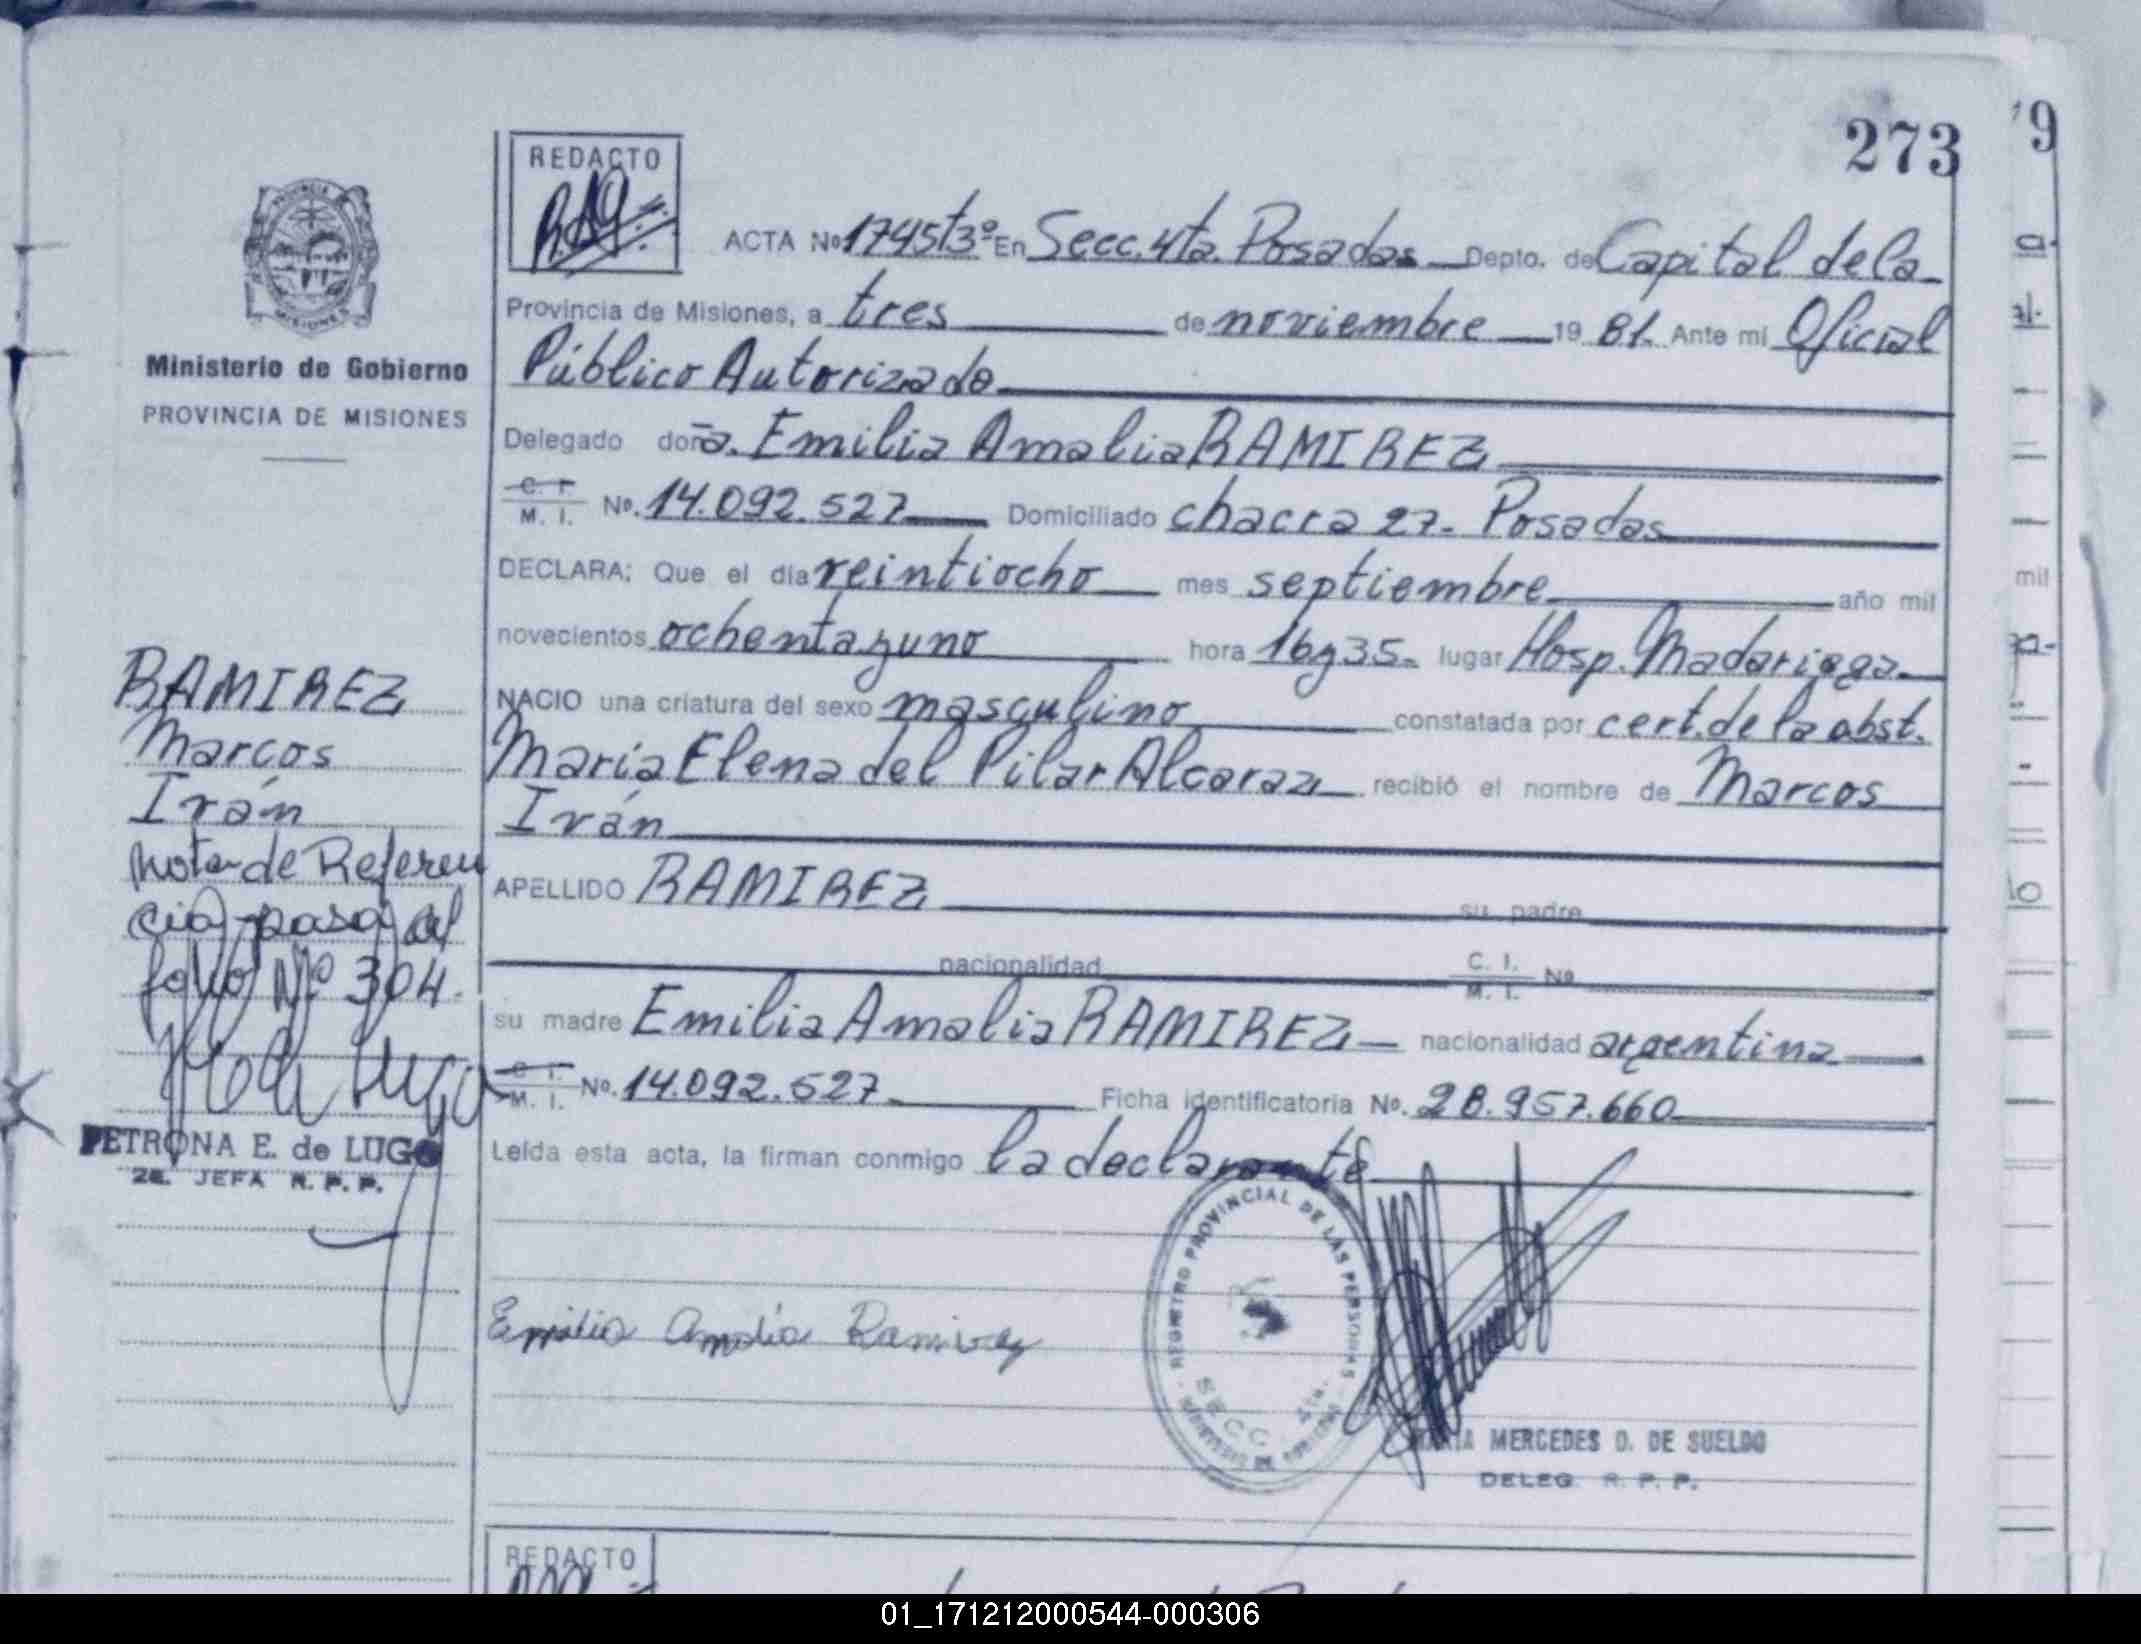 273
9
REDACTO
PROVINCIA
MISIONES
Ministerio de Gobierno
PROVINCIA DE MISIONES
ACTA Nº 1745 T3º En Secc. 4ta. Posadas Depto. de Capital de la
Provincia de Misiones, a tres de noviembre 19 81. Ante mi Oficial
Público Autorizado
Delegado doña. Emilia Amalia RAMIREZ
C. I.
M. I. Nº. 14.092.527 Domiciliado chacra 27. Posadas
DECLARA: Que el día veintiocho mes septiembre año mil
novecientos ochenta y uno hora 16 y 35. lugar Hosp. Madariaga.
NACIO una criatura del sexo masculino constatada por cert. de la obst.
María Elena del Pilar Alcaraz recibió el nombre de Marcos
Iván
APELLIDO RAMIREZ su padre
nacionalidad C. I.
M. I. Nº
su madre Emilia Amalia RAMIREZ nacionalidad argentina
C. I.
M. I. Nº. 14.092.527 Ficha identificatoria Nº. 28.957.660
Leída esta acta, la firman conmigo la declarante
RAMIREZ
Marcos
Iván
Nota de Referen
cia pasa al
folio Nº 304.
PETRONA E. de LUGO
2a. JEFA R. P. P.
Emilia Amalia Ramirez
REGISTRO PROVINCIAL DE LAS PERSONAS
SECC. 4ta.
MARIA MERCEDES O. DE SUELDO
DELEG. R. P. P.
REDACTO
mil
01_171212000544-000306